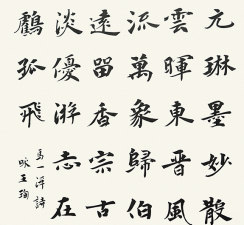 元琳墨妙散
雲暉東晋風
流萬象歸伯
遠留香宗古
淡優游志在
孤飛
馬一洋詩
咏王珣